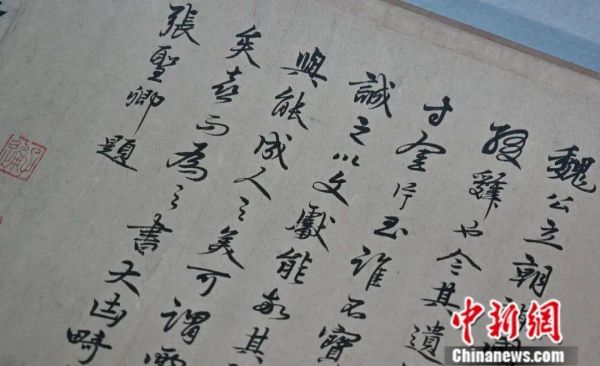 魏公立朝
辭也今其遺
寸金片玉誰不寶
誠之以文獻能其
與能成人之美可謂
矣喜而為之書大
張聖卿題
中新网
Chinanews.com